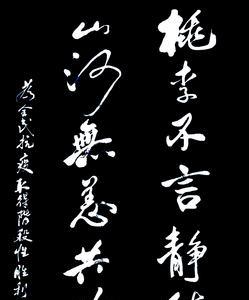 桃李不言静
山河無恙共
为全民抗疫取得階段性胜利